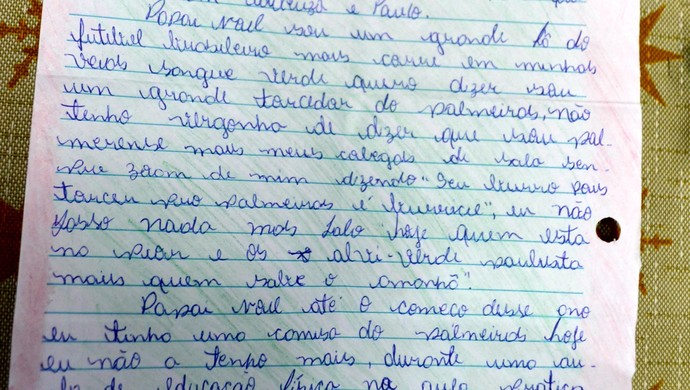 e Paulo.
Papai Noel sou um grande fã do
futibel brasileiro mais corre em minhas
veias sangue verde quero dizer sou
um grande torcedor do palmeiras, não
tenho vergonha de dizer que sou pal-
meirense mais meus colegas de sala sen-
pre zoam de mim dizendo "Seu burro pois
torcer pro palmeiras é burrice", eu não
fasso nada mas falo "hoje quem esta
no pior e os alvi-verde paulista
mais quem sabe o amanhã".
Papai Noel até o começo desse ano
eu tinha uma camisa do palmeiras hoje
eu não a tenho mais, durante uma au-
la de educação física na aula